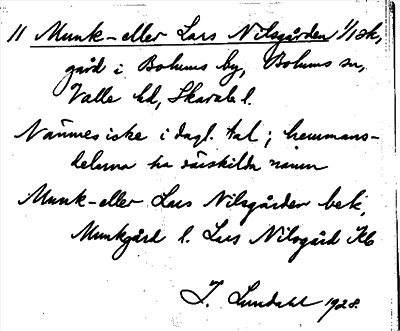 11 Munk- eller Lars Nilsgården 1/1 sk,
gård i Bolums by, Bolums sn,
Valle hd, Skarab. l.
Nämnes icke i dagl. tal; hemmans-
delarna ha särskilda namn
Munk- eller Lars Nilsgården bet.,
Munkgård l. Lars Nilsgård Kb
I. Lundahl 1928.